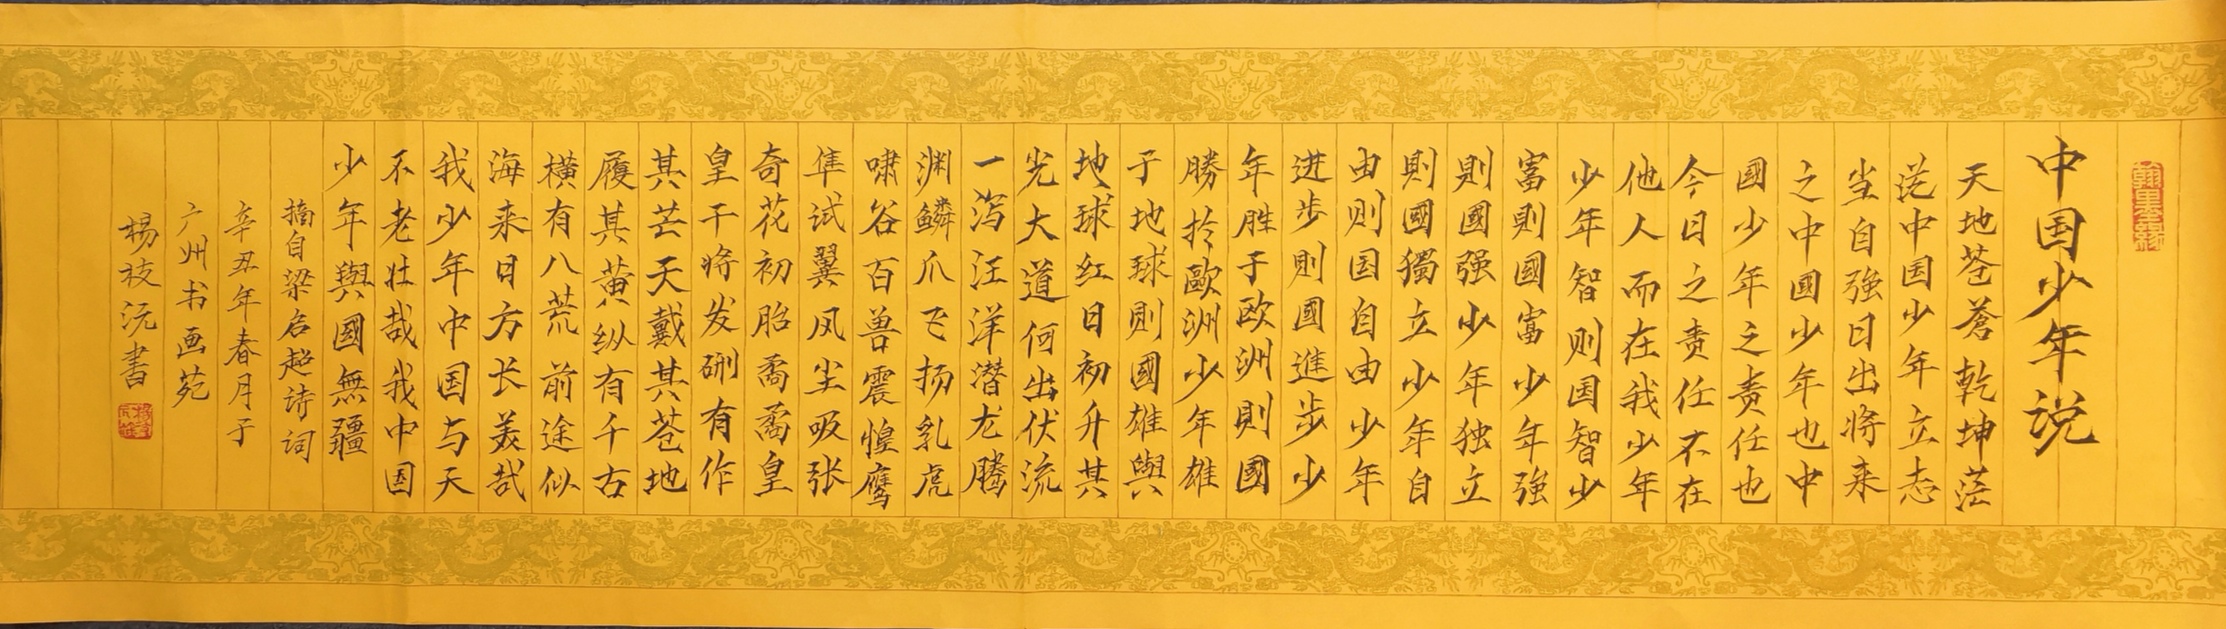 翰墨缘
中国少年说
天地苍蒼乾坤茫
茫中国少年立志
当自强日出将来
之中國少年也中
國少年之责任也
今日之责任不在
他人而在我少年
少年智则国智少
富則國富少年強
則國强少年独立
則國獨立少年自
由则国自由少年
进步則國進步少
年胜于欧洲則國
勝於歐洲少年雄
于地球則國雄與
地球红日初升其
光大道何出伏流
一泻汪洋潜龙腾
渊鳞爪飞扬乳虎
啸谷百兽震惶鹰
隼试翼风尘吸张
奇花初胎矞矞皇
皇干将发硎有作
其芒天戴其苍地
履其黄纵有千古
横有八荒前途似
海来日方长美哉
我少年中国与天
不老壮哉我中国
少年與國無疆
摘自梁启超诗词
辛丑年春月于
广州书画苑
杨枝沅書